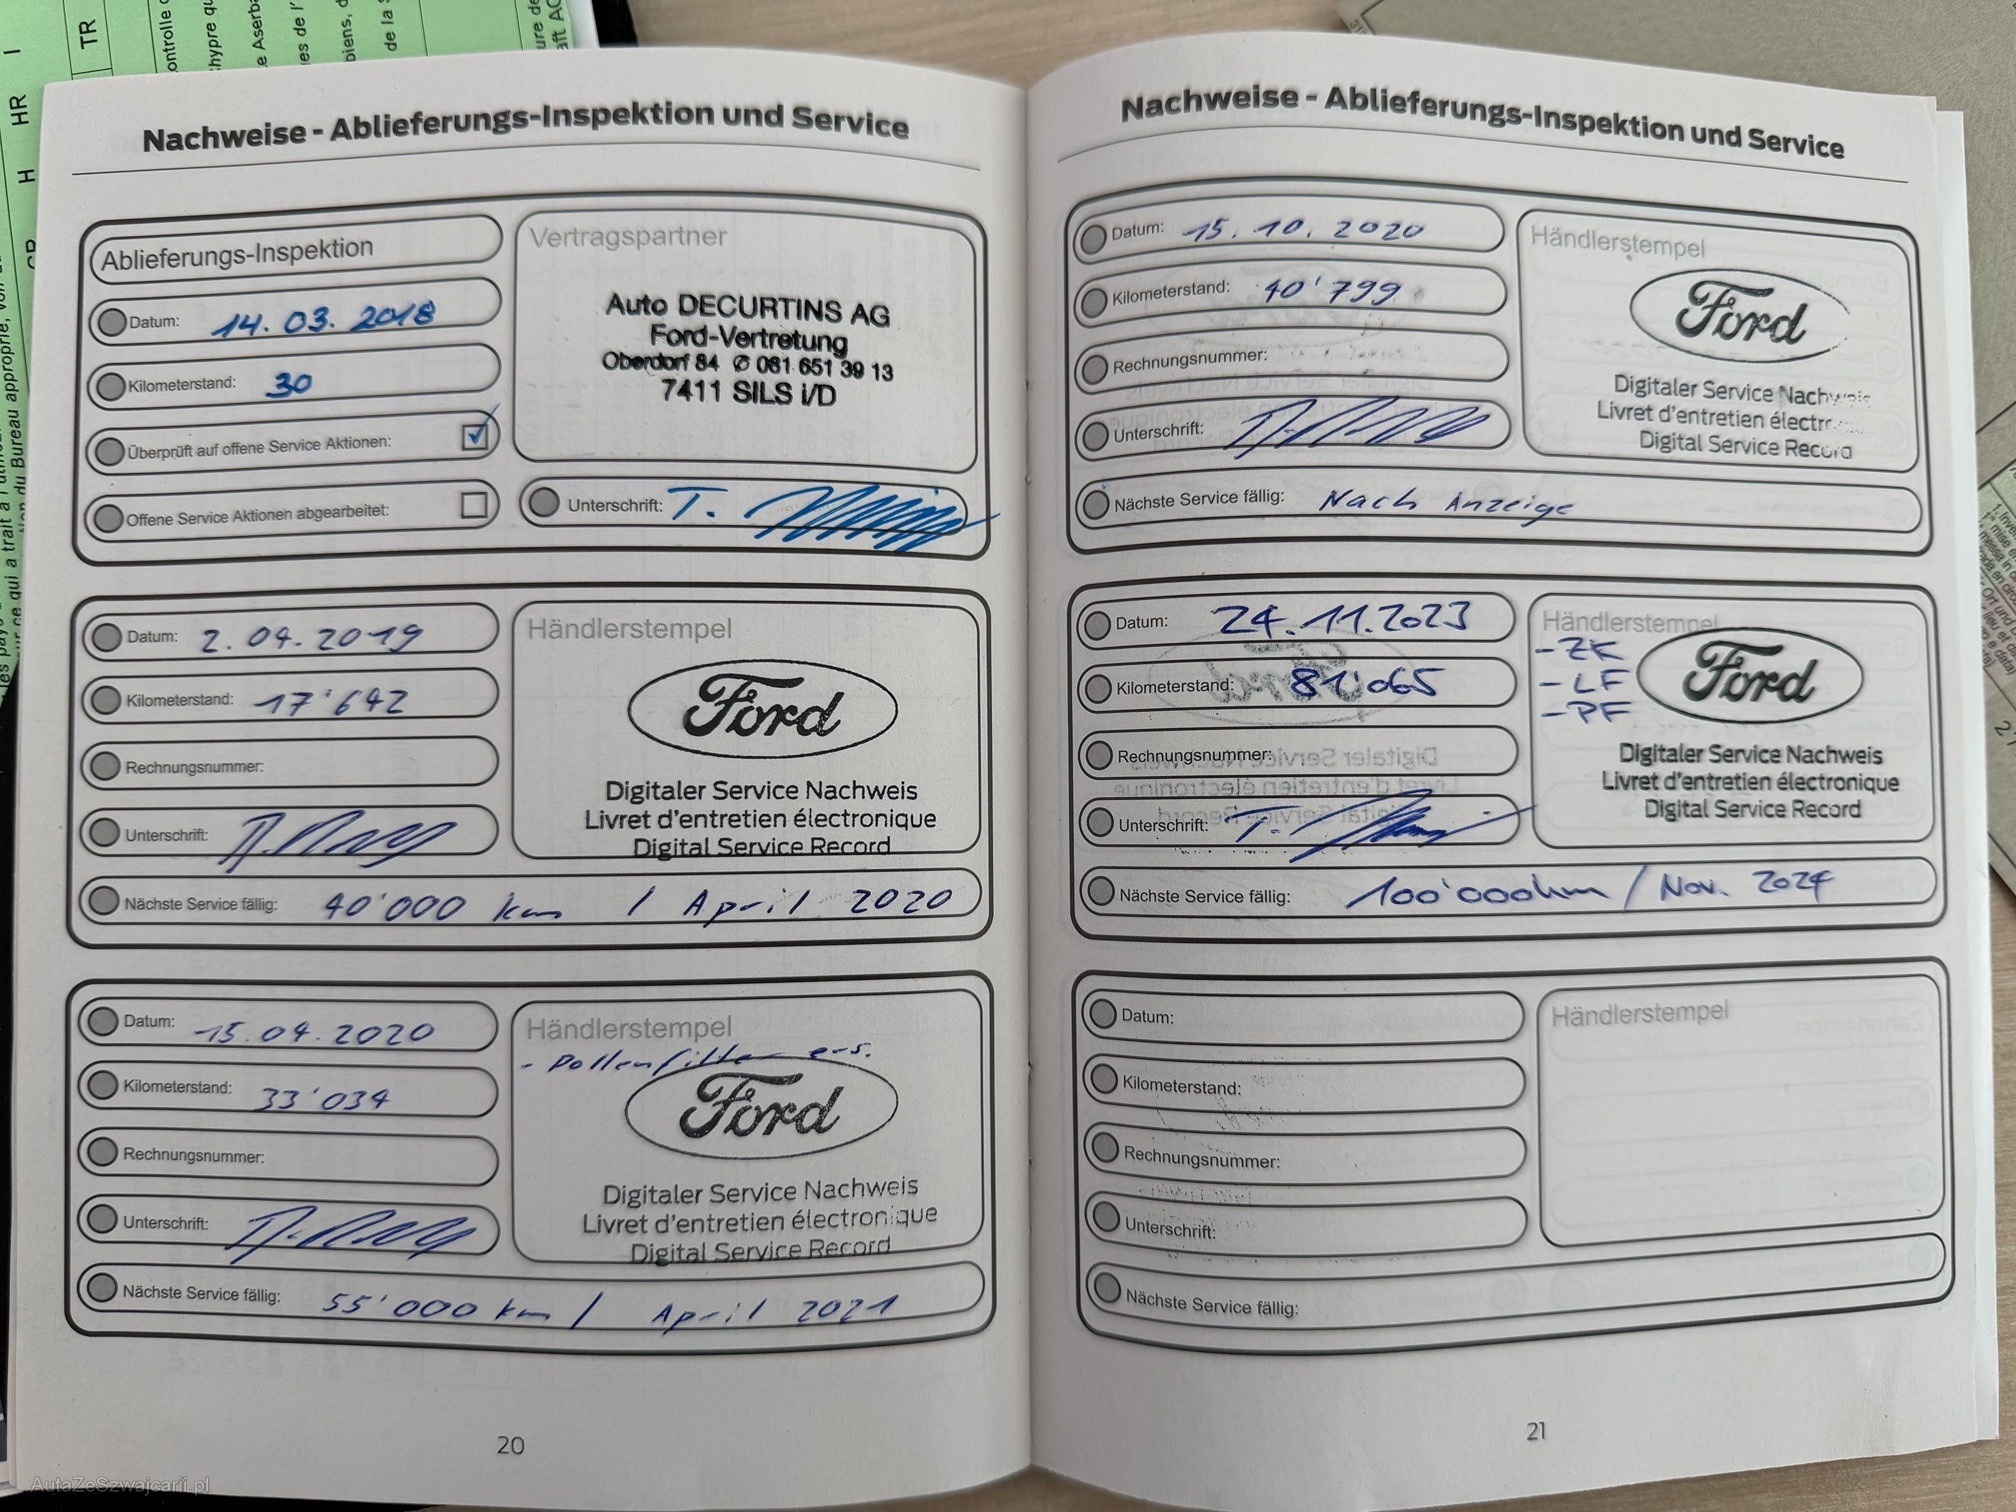 TR
HR
H
I
Nachweise - Ablieferungs-Inspektion und Service
Ablieferungs-Inspektion
Datum: 14. 03. 2018
Kilometerstand: 30
Überprüft auf offene Service Aktionen: ✓
Offene Service Aktionen abgearbeitet:
Vertragspartner
Auto DECURTINS AG
Ford-Vertretung
Oberdorf 84 ✆ 081 651 39 13
7411 SILS i/D
Unterschrift: T.
Datum: 2. 04. 2019
Kilometerstand: 17'642
Rechnungsnummer:
Unterschrift:
Händlerstempel
Ford
Digitaler Service Nachweis
Livret d'entretien électronique
Digital Service Record
Nächste Service fällig: 40'000 km / April 2020
Datum: 15.04.2020
Kilometerstand: 33'034
Rechnungsnummer:
Unterschrift:
Händlerstempel
- Pollenfilter ers.
Ford
Digitaler Service Nachweis
Livret d'entretien électronique
Digital Service Record
Nächste Service fällig: 55'000 km / April 2021
20
Nachweise - Ablieferungs-Inspektion und Service
Datum: 15. 10. 2020
Kilometerstand: 40'799
Rechnungsnummer:
Unterschrift:
Händlerstempel
Ford
Digitaler Service Nachweis
Livret d'entretien électr
Digital Service Record
Nächste Service fällig: Nach Anzeige
Datum: 24.11.2023
Kilometerstand: 81'065
Rechnungsnummer:
Unterschrift: T.
Händlerstempel
- ZK
- LF
- PF
Ford
Digitaler Service Nachweis
Livret d'entretien électronique
Digital Service Record
Nächste Service fällig: 100'000km / Nov. 2024
Datum:
Kilometerstand:
Rechnungsnummer:
Unterschrift:
Händlerstempel
Nächste Service fällig:
21
AutaZeSzwajcarii.pl